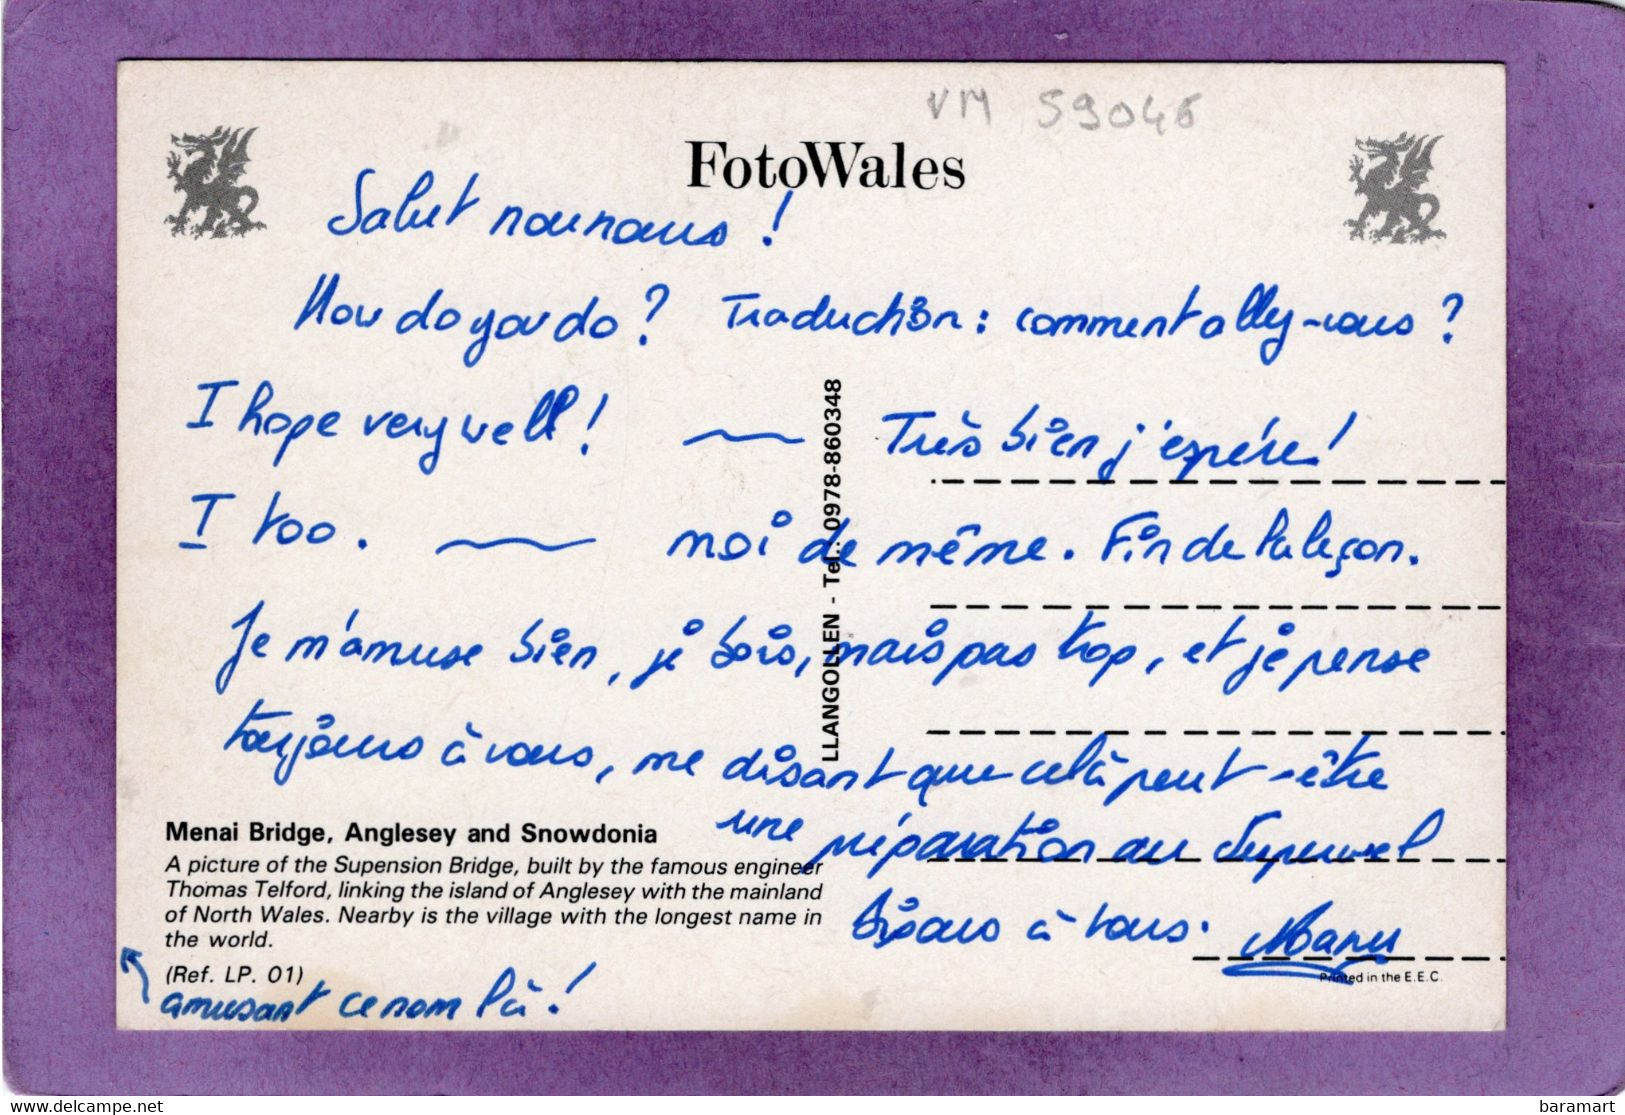 VM 59046
FotoWales
Salut nounous !
How do you do ? Traduction : comment allez-vous ?
I hope very well ! Très bien j'espère !
I too. moi de même. Fin de la leçon.
Je m'amuse bien, je bois, mais pas trop, et je pense
toujours à vous, me disant que celà peut-être
une préparation au
Bisous à tous. Manu
LLANGOLLEN - Tel.: 0978-860348
Menai Bridge, Anglesey and Snowdonia
A picture of the Supension Bridge, built by the famous engineer
Thomas Telford, linking the island of Anglesey with the mainland
of North Wales. Nearby is the village with the longest name in
the world.
(Ref. LP. 01)
amusant ce nom là !
Printed in the E.E.C.
www.delcampe.net
baramart